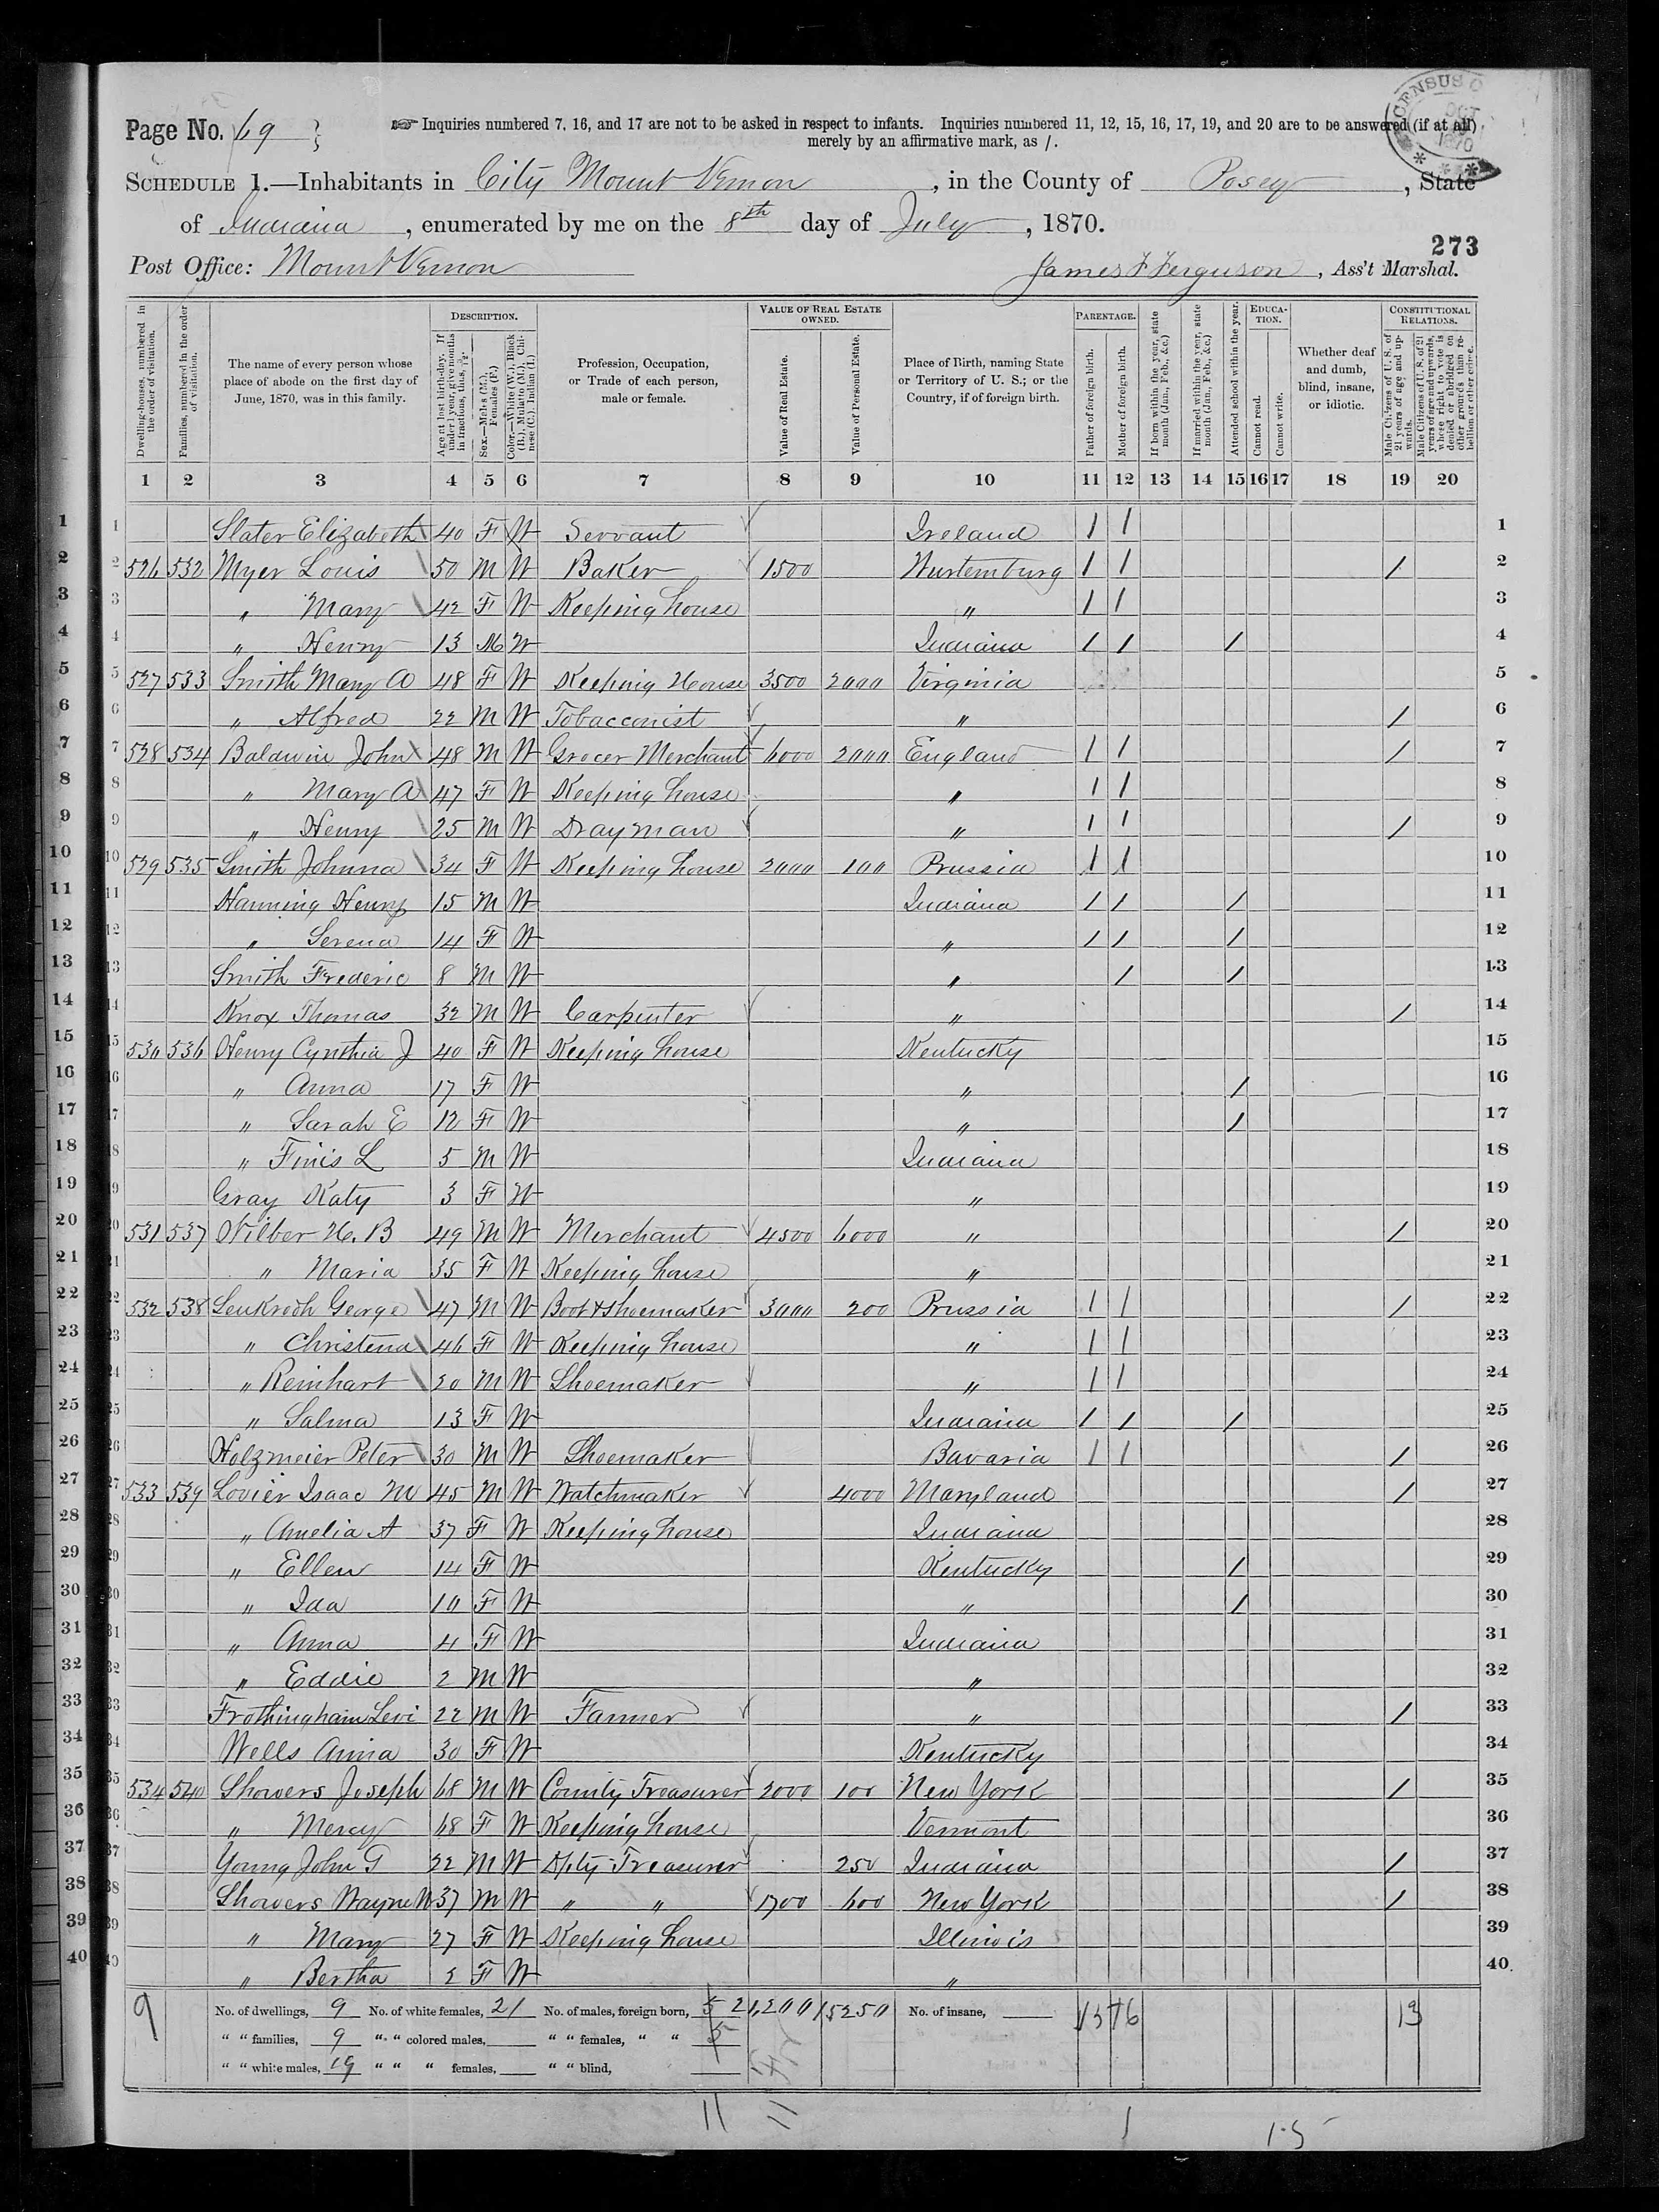 Page No. 69
☞ Inquiries numbered 7, 16, and 17 are not to be asked in respect to infants. Inquiries numbered 11, 12, 15, 16, 17, 19, and 20 are to be answered (if at all)
merely by an affirmative mark, as /.
CENSUS O
OCT
1870
SCHEDULE 1.—Inhabitants in City Mount Vernon, in the County of Posey, State
of Indiana, enumerated by me on the 8th day of July, 1870.
273
Post Office: Mount Vernon James F Ferguson, Ass't Marshal.
Dwelling-houses, numbered in the order of visitation.
Families, numbered in the order of visitation.
The name of every person whose place of abode on the first day of June, 1870, was in this family.
DESCRIPTION.
Age at last birth-day. If under 1 year, give months in fractions, thus, 3/12.
Sex.—Males (M.), Females (F.)
Color.—White (W.), Black (B.), Mulatto (M.), Chinese (C.), Indian (I.)
Profession, Occupation, or Trade of each person, male or female.
VALUE OF REAL ESTATE OWNED.
Value of Real Estate.
Value of Personal Estate.
Place of Birth, naming State or Territory of U. S.; or the Country, if of foreign birth.
PARENTAGE.
Father of foreign birth.
Mother of foreign birth.
If born within the year, state month (Jan., Feb., &c.)
If married within the year, state month (Jan., Feb., &c.)
Attended school within the year.
EDUCATION.
Cannot read.
Cannot write.
Whether deaf and dumb, blind, insane, or idiotic.
CONSTITUTIONAL RELATIONS.
Male Citizens of U. S. of 21 years of age and upwards.
Male Citizens of U. S. of 21 years of age and upwards, where right to vote is denied or abridged on other grounds than rebellion or other crime.
1 2 3 4 5 6 7 8 9 10 11 12 13 14 15 16 17 18 19 20
1 Slater Elizabeth 40 F W Servant Ireland / / 1
2 526 532 Myer Louis 50 M W Baker 1500 Wurtemburg / / / 2
3 " Mary 42 F W Keeping house " / / 3
4 " Henry 13 M W Indiana / / / 4
5 527 533 Smith Mary A 48 F W Keeping House 3500 2000 Virginia 5
6 " Alfred 22 M W Tobacconist " / 6
7 528 534 Baldwin John 48 M W Grocer Merchant 6000 2000 England / / / 7
8 " Mary A 47 F W Keeping house " / / 8
9 " Henry 25 M W Drayman " / / / 9
10 529 535 Smith Johnna 34 F W Keeping house 2000 100 Prussia / / 10
11 Hanning Henry 15 M W Indiana / / / 11
12 " Serena 14 F W " / / / 12
13 Smith Frederic 8 M W " / / 13
14 Knox Thomas 32 M W Carpenter " / 14
15 530 536 Henry Cynthia J 40 F W Keeping house Kentucky 15
16 " Anna 17 F W " / 16
17 " Sarah E 12 F W " / 17
18 " Finis L 5 M W Indiana 18
19 Gray Katy 3 F W " 19
20 531 537 Wilber H. B 49 M W Merchant 4500 6000 " / 20
21 " Maria 35 F W Keeping house " 21
22 532 538 Leukroth George 47 M W Boot & Shoemaker 3000 200 Prussia / / / 22
23 " Christena 46 F W Keeping house " / / 23
24 " Reinhart 20 M W Shoemaker " / / 24
25 " Salma 13 F W Indiana / / / 25
26 Holzmeier Peter 30 M W Shoemaker Bavaria / / / 26
27 533 539 Lovier Isaac M 45 M W Watchmaker 4000 Maryland / 27
28 " Amelia A 37 F W Keeping house Indiana 28
29 " Ellen 14 F W Kentucky / 29
30 " Ida 10 F W " / 30
31 " Anna 4 F W Indiana 31
32 " Eddie 2 M W " 32
33 Frothingham Levi 22 M W Farmer " / 33
34 Wells Anna 30 F W Kentucky 34
35 534 540 Showers Joseph 68 M W County Treasurer 2000 100 New York / 35
36 " Mercy 68 F W Keeping house Vermont 36
37 Young John G 22 M W Dpty Treasurer 250 Indiana / 37
38 Showers Wayne W 37 M W " " 1700 600 New York / 38
39 " Mary 27 F W Keeping house Illinois 39
40 " Bertha 2 F W " 40
9 No. of dwellings, 9 No. of white females, 21 No. of males, foreign born, 5 21,200 15250 No. of insane, 13 16 13
" " families, 9 " " colored males, " " females, " " 5
" " white males, 19 " " " females, " " blind,
11 11 1 15